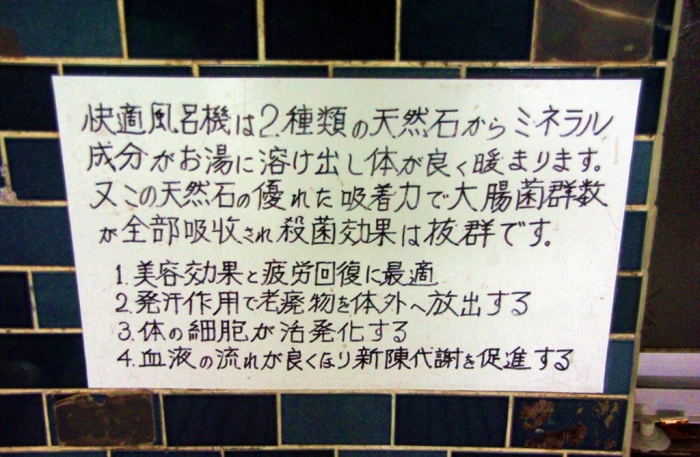 快適風呂機は2.種類の天然石からミネラル
成分がお湯に溶け出し体が良く暖まります。
又この天然石の優れた吸着力で大腸菌群数
が全部吸収され殺菌効果は抜群です。
1.美容効果と疲労回復に最適
2.発汗作用で老廃物を体外へ放出する
3.体の細胞が活発化する
4.血液の流れが良くなり新陳代謝を促進する